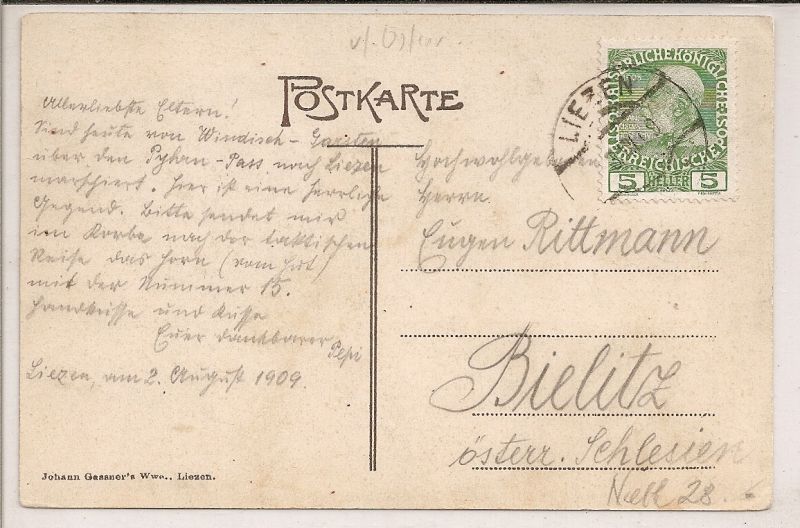 POSTKARTE
Allerliebste Eltern!
Sind heute von Windisch-Garsten
über den Pyhrn-Pass nach Liezen
marschiert. Hier ist eine herrliche
Gegend. Bitte sendet mir
im Korbe nach der taktischen
Reise das Horn (vom Hut)
mit der Nummer 15.
Handküsse und Küsse
Euer dankbarer
Pepi
Liezen, am 2. August 1909.
Johann Gassner's Wwe., Liezen.
LIEZEN
5 HELLER 5
Hochwohlgeboren
Herrn
Eugen Rittmann
Bielitz
österr. Schlesien
28